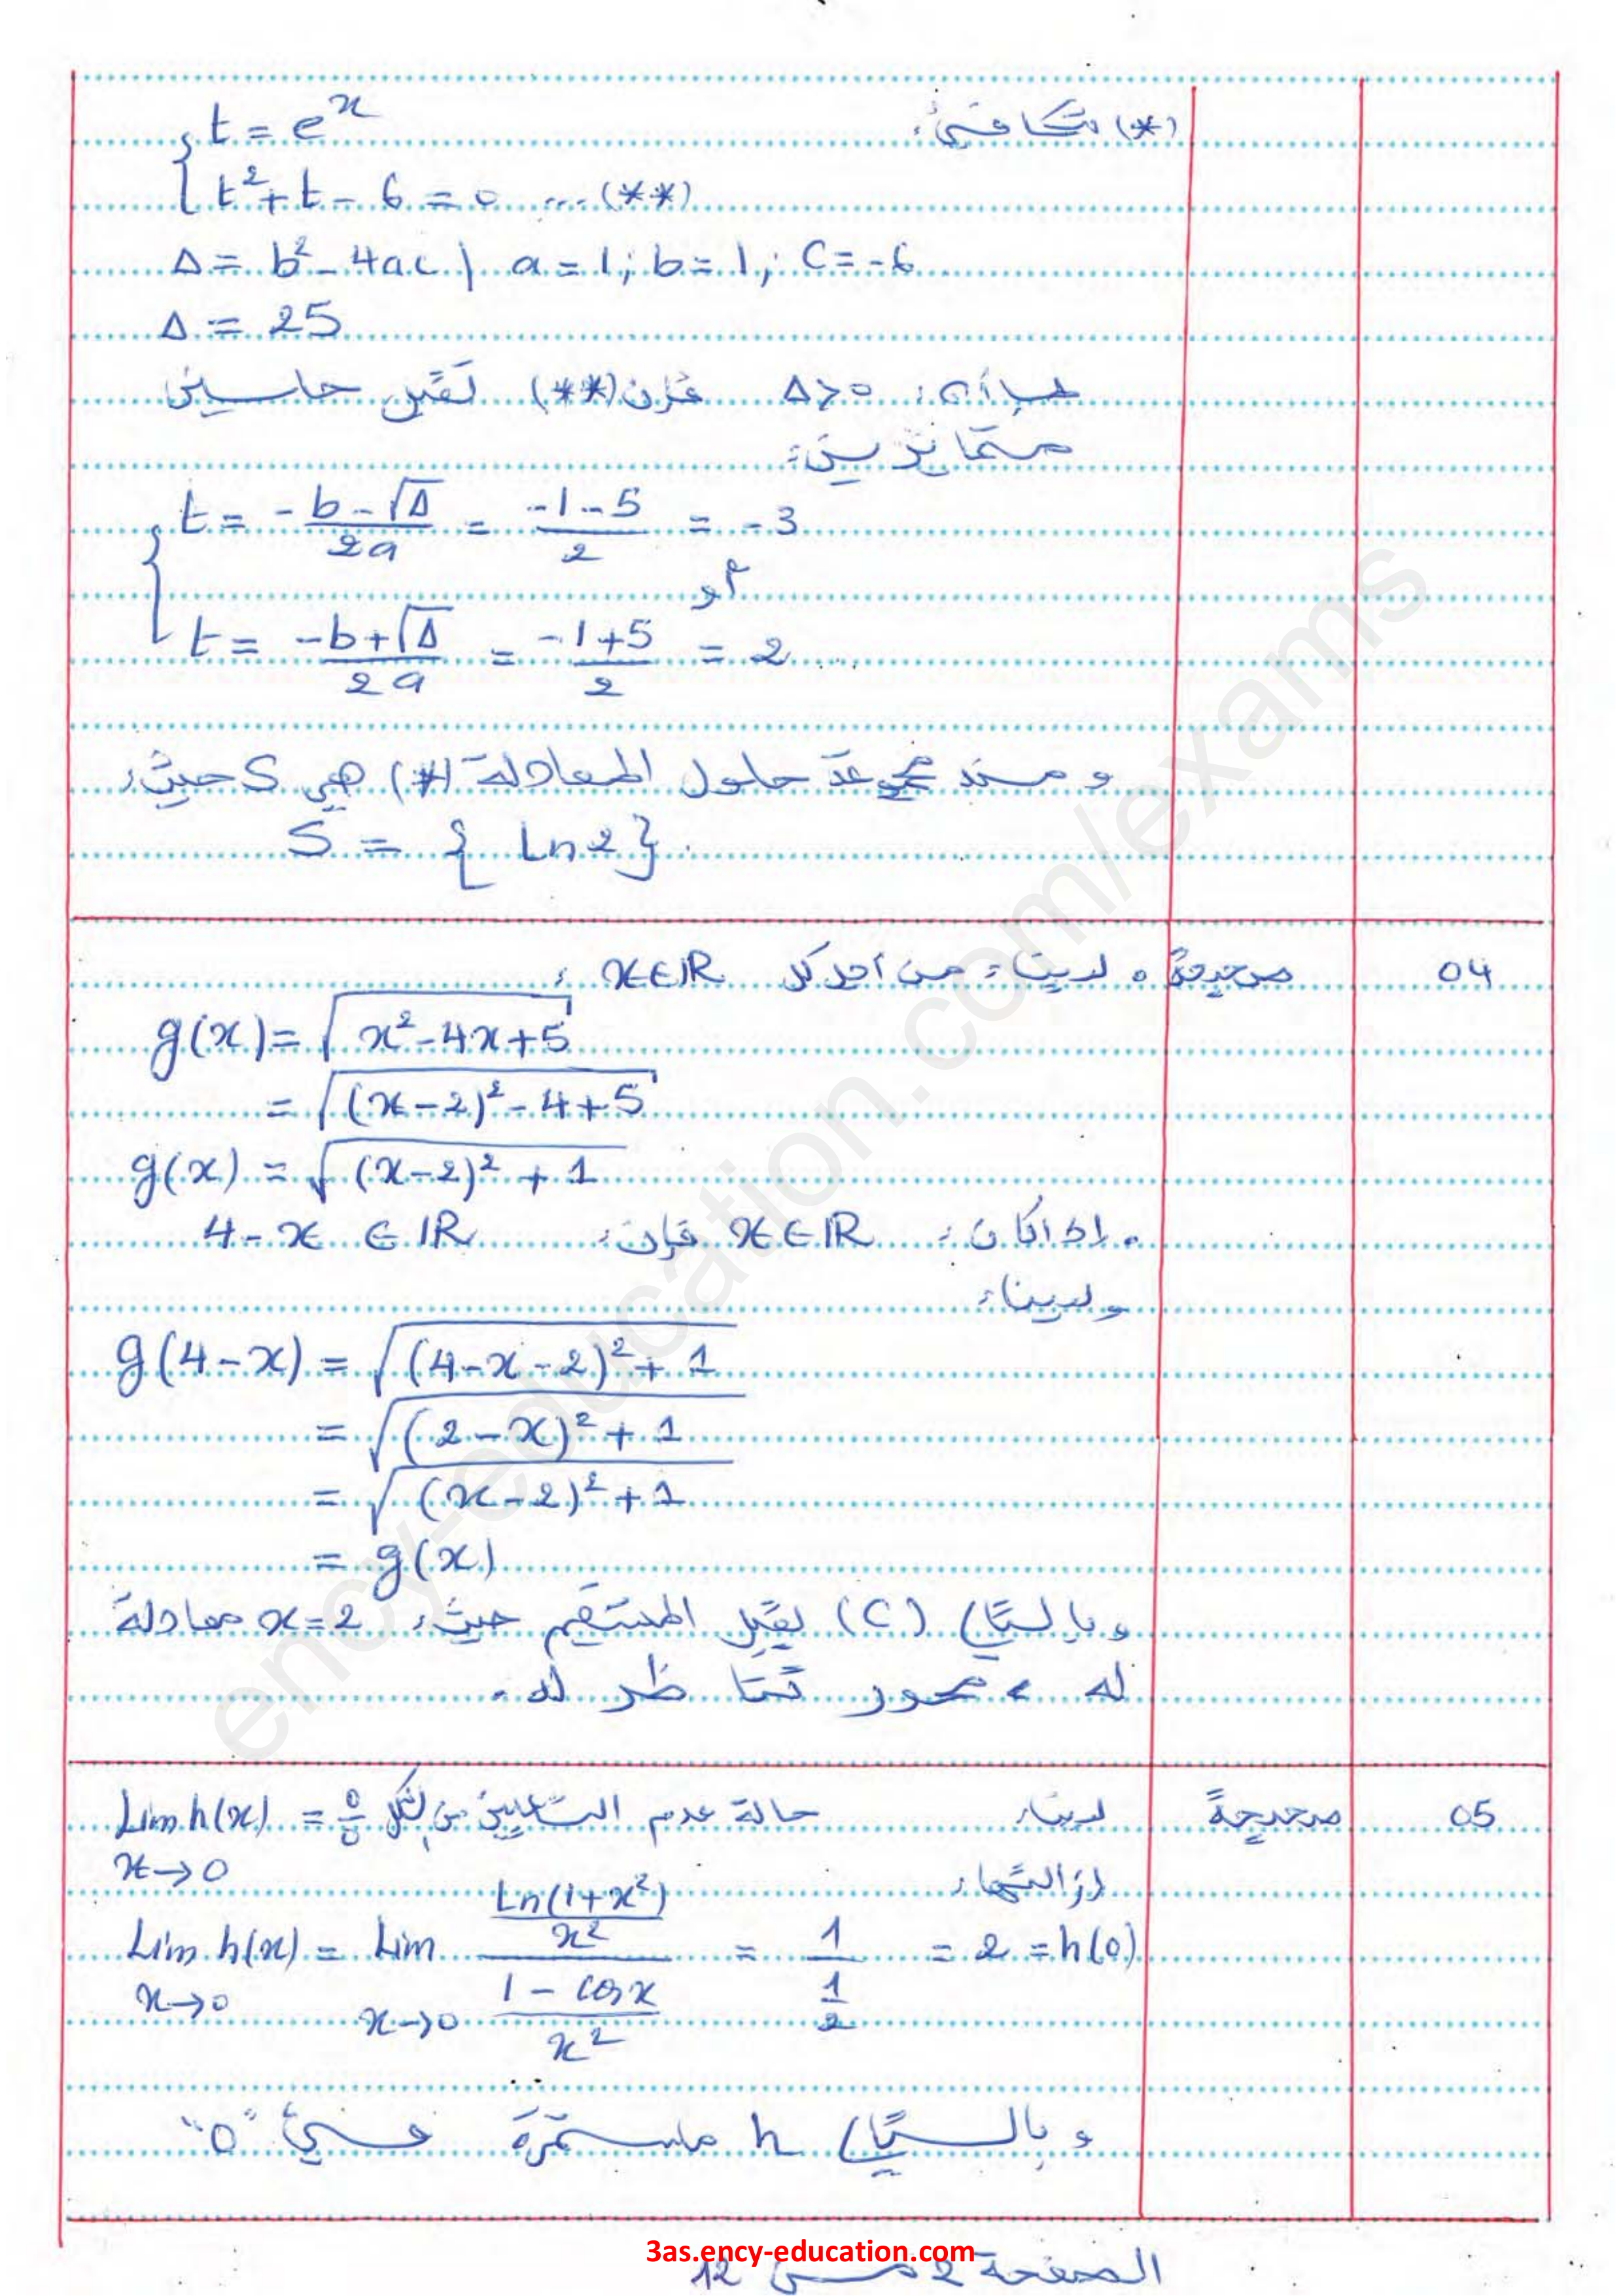 (*) تكافئ:
{ t = e^x
t² + t - 6 = 0 ... (**)
Δ = b² - 4ac | a = 1 ; b = 1 ; c = -6
Δ = 25
بما أن: Δ > 0 فإن (**) تقبل حلين
متمايزين:
{ t = (-b - √Δ)/(2a) = (-1 - 5)/2 = -3
أو
t = (-b + √Δ)/(2a) = (-1 + 5)/2 = 2
ومنه مجموعة حلول المعادلة (*) هي S حيث:
S = { Ln2 }.
04 صحيحة • لدينا: من أجل كل x ∈ IR :
g(x) = √(x² - 4x + 5)
= √((x-2)² - 4 + 5)
g(x) = √((x-2)² + 1)
• إذا كان: x ∈ IR فإن: 4 - x ∈ IR
ولدينا:
g(4-x) = √((4-x-2)² + 1
= √((2-x)² + 1
= √((x-2)² + 1
= g(x)
وبالتالي (C) يقبل المستقيم حيث: x = 2 معادلة
له، محور تناظر له.
05 صحيحة لدينا: حالة عدم التعيين من الشكل Lim h(x) = 0/0
x→0
إزالتها:
Lim h(x) = Lim (Ln(1+x²)/x²)/((1 - cos x)/x²) = 1/(1/2) = 2 = h(0)
x→0 x→0
وبالتالي h مستمرة في "0"
3as.ency-education.com
الصفحة 2 من 12
ency-education.com/exams